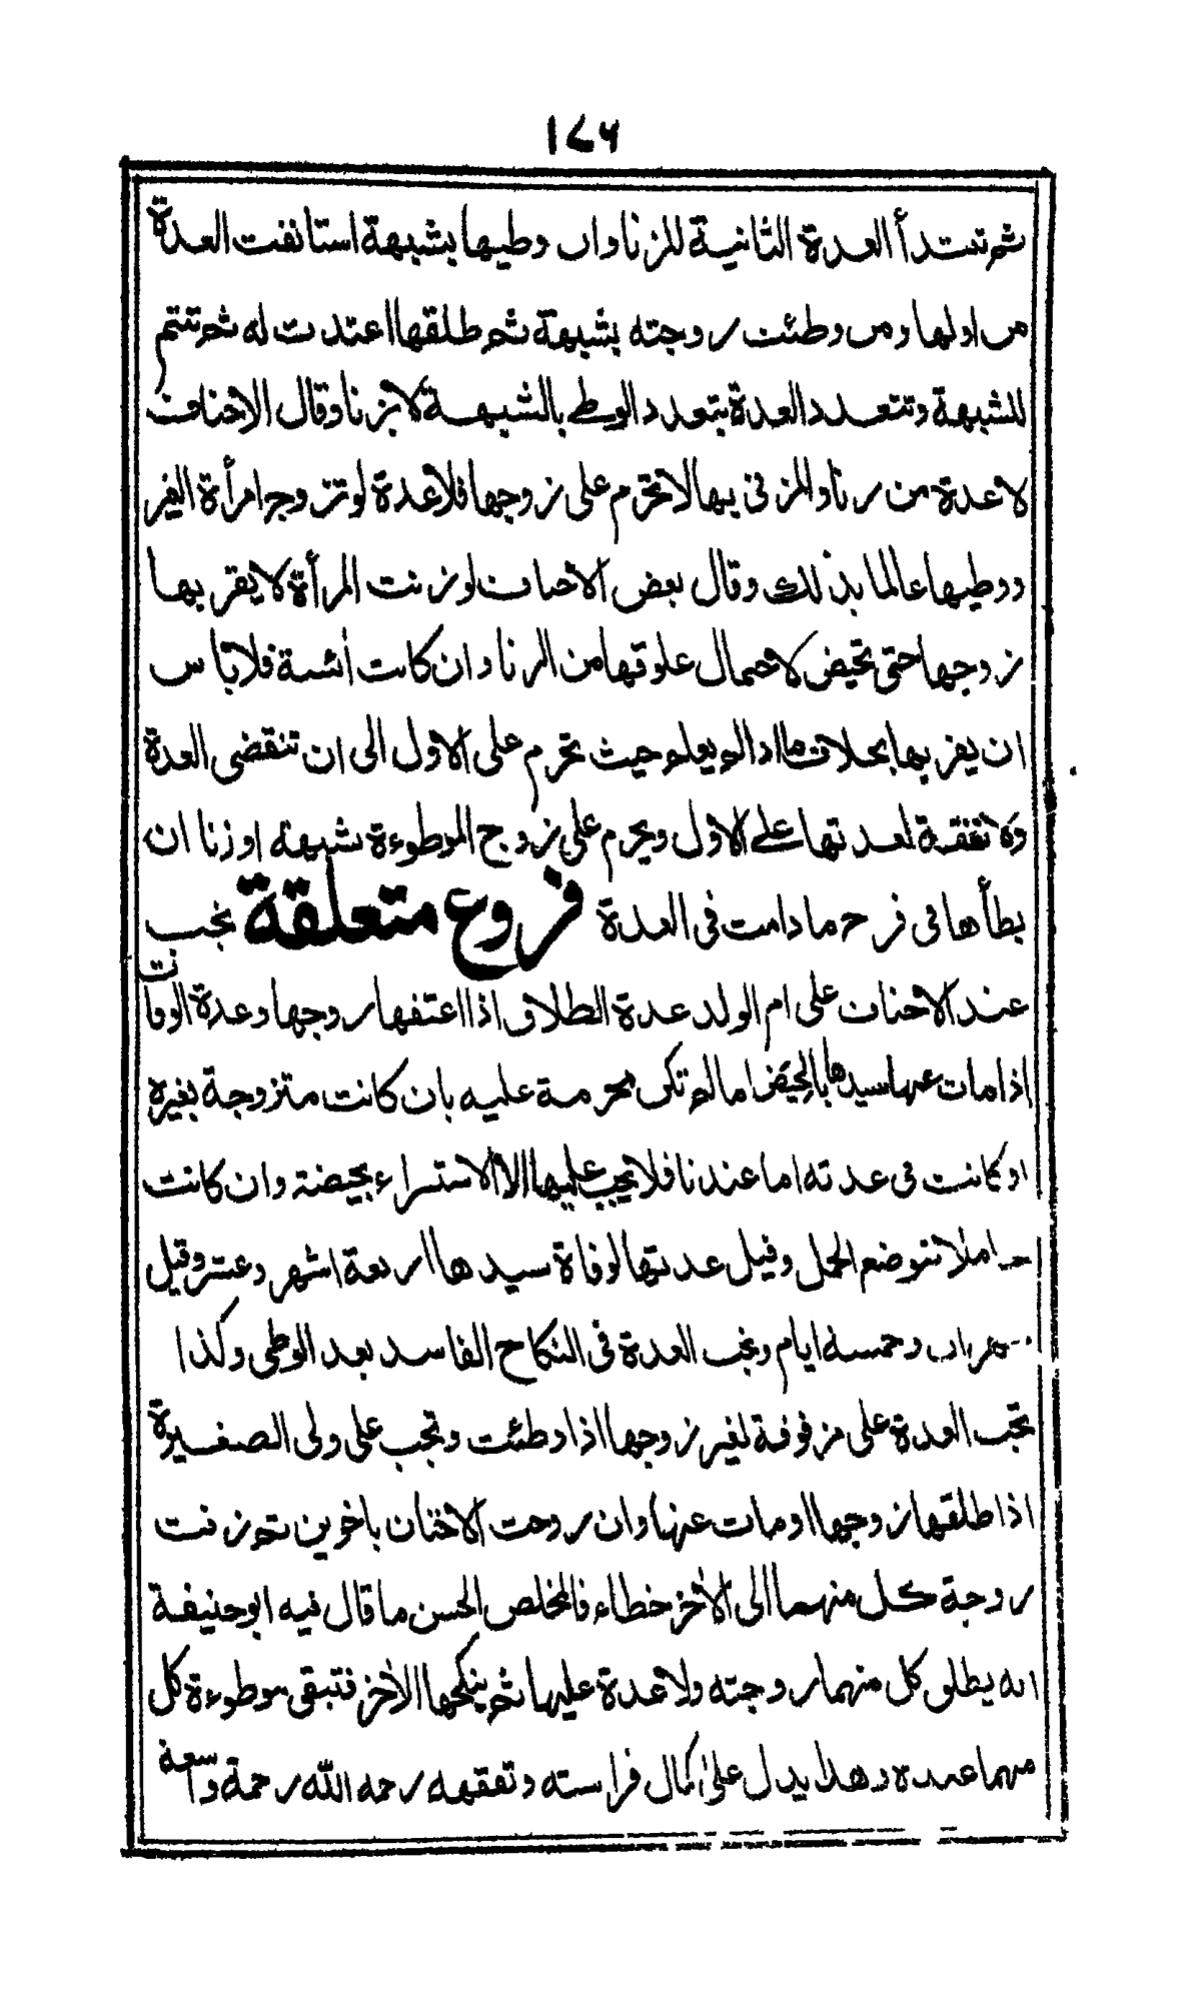 ١٧٦
ثم تبتدأ العدة الثانية للزنا وان وطيها بشبهة استانفت العدة
من اولها ومن وطئت زوجته بشبهة ثم طلقها اعتدت له ثم تتم
للشبهة وتتعدد العدة بتعدد الوطي بالشبهة لا بزنا وقال الاحناف
لا عدة من زنا والمزنى بها لا تحرم على زوجها فلا عدة لو تزوج امرأة الغير
ووطيها عالما بذلك وقال بعض الاحناف لو زنت المرأة لا يقربها
زوجها حتى تحيض لاحتمال علوقها من الزنا وان كانت آئسة فلا بأس
ان يقربها بخلاف ما اذا لم يعلم حيث تحرم على الاول الى ان تنقضى العدة
ولا نفقة لعدتها على الاول ويحرم على زوج الموطوءة بشبهة او زنا ان
يطأها فى فرج ما دامت فى العدة فروع متعلقة تجب
عند الاحناف على ام الولد عدة الطلاق اذا اعتقها زوجها وعدة الوفات
اذا مات عنها سيدها بالحيض اما لم تكن محرمة عليه بان كانت متزوجة بغيره
او كانت فى عدته اما عندنا فلا يجب عليها الا الاستبراء بحيضة وان كانت
حاملا تنوضع الحمل وقيل عدتها لوفاة سيدها اربعة اشهر وعشر وقيل
شهران وخمسة ايام وتجب العدة فى النكاح الفاسد بعد الوطى وكذا
تجب العدة على مزفوفة لغير زوجها اذا وطئت وتجب على ولى الصغيرة
اذا طلقها زوجها او مات عنها وان زوجت الاختان باخوين ثم زفت
زوجة كل منهما الى الآخر خطاء فالمخلص الحسن ما قال فيه ابو حنيفة
انه يطلق كل منهما زوجته ولا عدة عليها ثم ينكحها الآخر فتبقى موطوءة كل
منهما عنده وهذا يدل على كمال فراسته وتفقهه رحمه الله رحمة واسعة